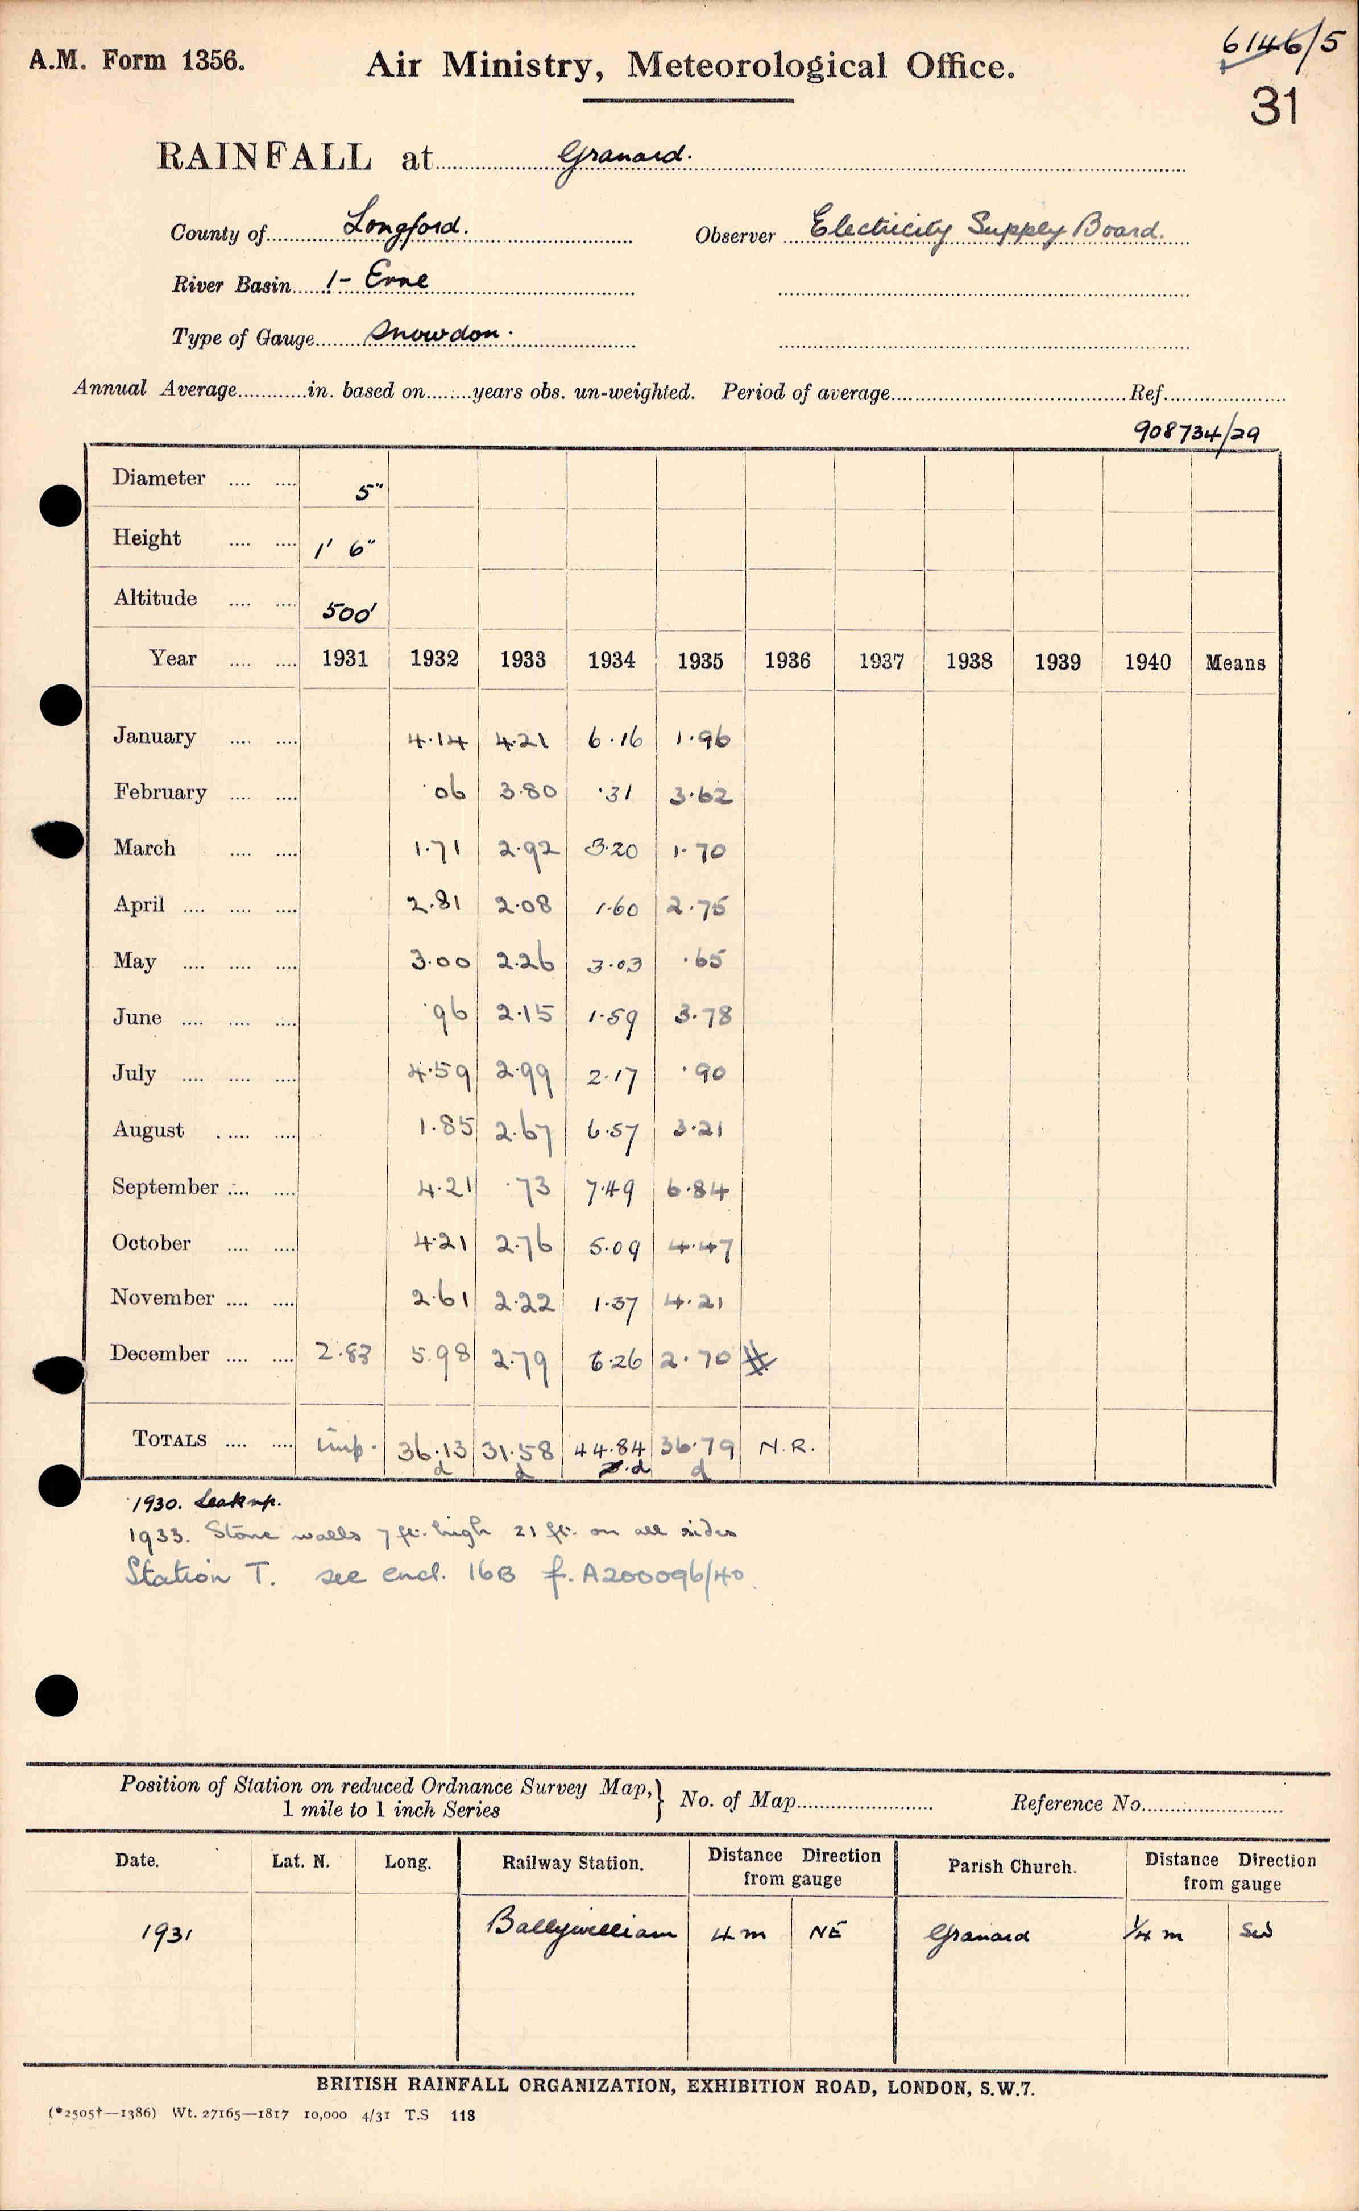 6146/5
A.M. Form 1356. Air Ministry, Meteorological Office.
31
RAINFALL at Granard.
County of Longford. Observer Electricity Supply Board.
River Basin 1- Erne
Type of Gauge Snowdon.
Annual Average............in. based on........years obs. un-weighted. Period of average.................... Ref....................
908734/29
Diameter .... .... 5"
Height .... .... 1' 6"
Altitude .... .... 500'
Year .... .... 1931 1932 1933 1934 1935 1936 1937 1938 1939 1940 Means
January .... .... 4.14 4.21 6.16 1.96
February .... .... .06 3.80 .31 3.62
March .... .... 1.71 2.92 3.20 1.70
April .... .... .... 2.81 2.08 1.60 2.75
May .... .... .... 3.00 2.26 3.03 .65
June .... .... .... .96 2.15 1.59 3.78
July .... .... .... 4.59 2.99 2.17 .90
August .... .... 1.85 2.67 6.57 3.21
September .... .... 4.21 .73 7.49 6.84
October .... .... 4.21 2.76 5.09 4.47
November .... .... 2.61 2.22 1.37 4.21
December .... .... 2.83 5.98 2.79 6.26 2.70
TOTALS .... .... imp. 36.13 31.58 44.84 36.79 N.R.
d d d d
1930.
1933. Stone walls 7 ft. high 21 ft. on all sides
Station T. see encl. 16B f. A200096/40.
Position of Station on reduced Ordnance Survey Map, } No. of Map........................ Reference No........................
1 mile to 1 inch Series
Date. Lat. N. Long. Railway Station. Distance Direction from gauge Parish Church. Distance Direction from gauge
1931 Ballywilliam 4 m NE Granard ¼ m SW
BRITISH RAINFALL ORGANIZATION, EXHIBITION ROAD, LONDON, S.W.7.
(*2505†—1386) Wt. 27165—1817 10,000 4/31 T.S 118